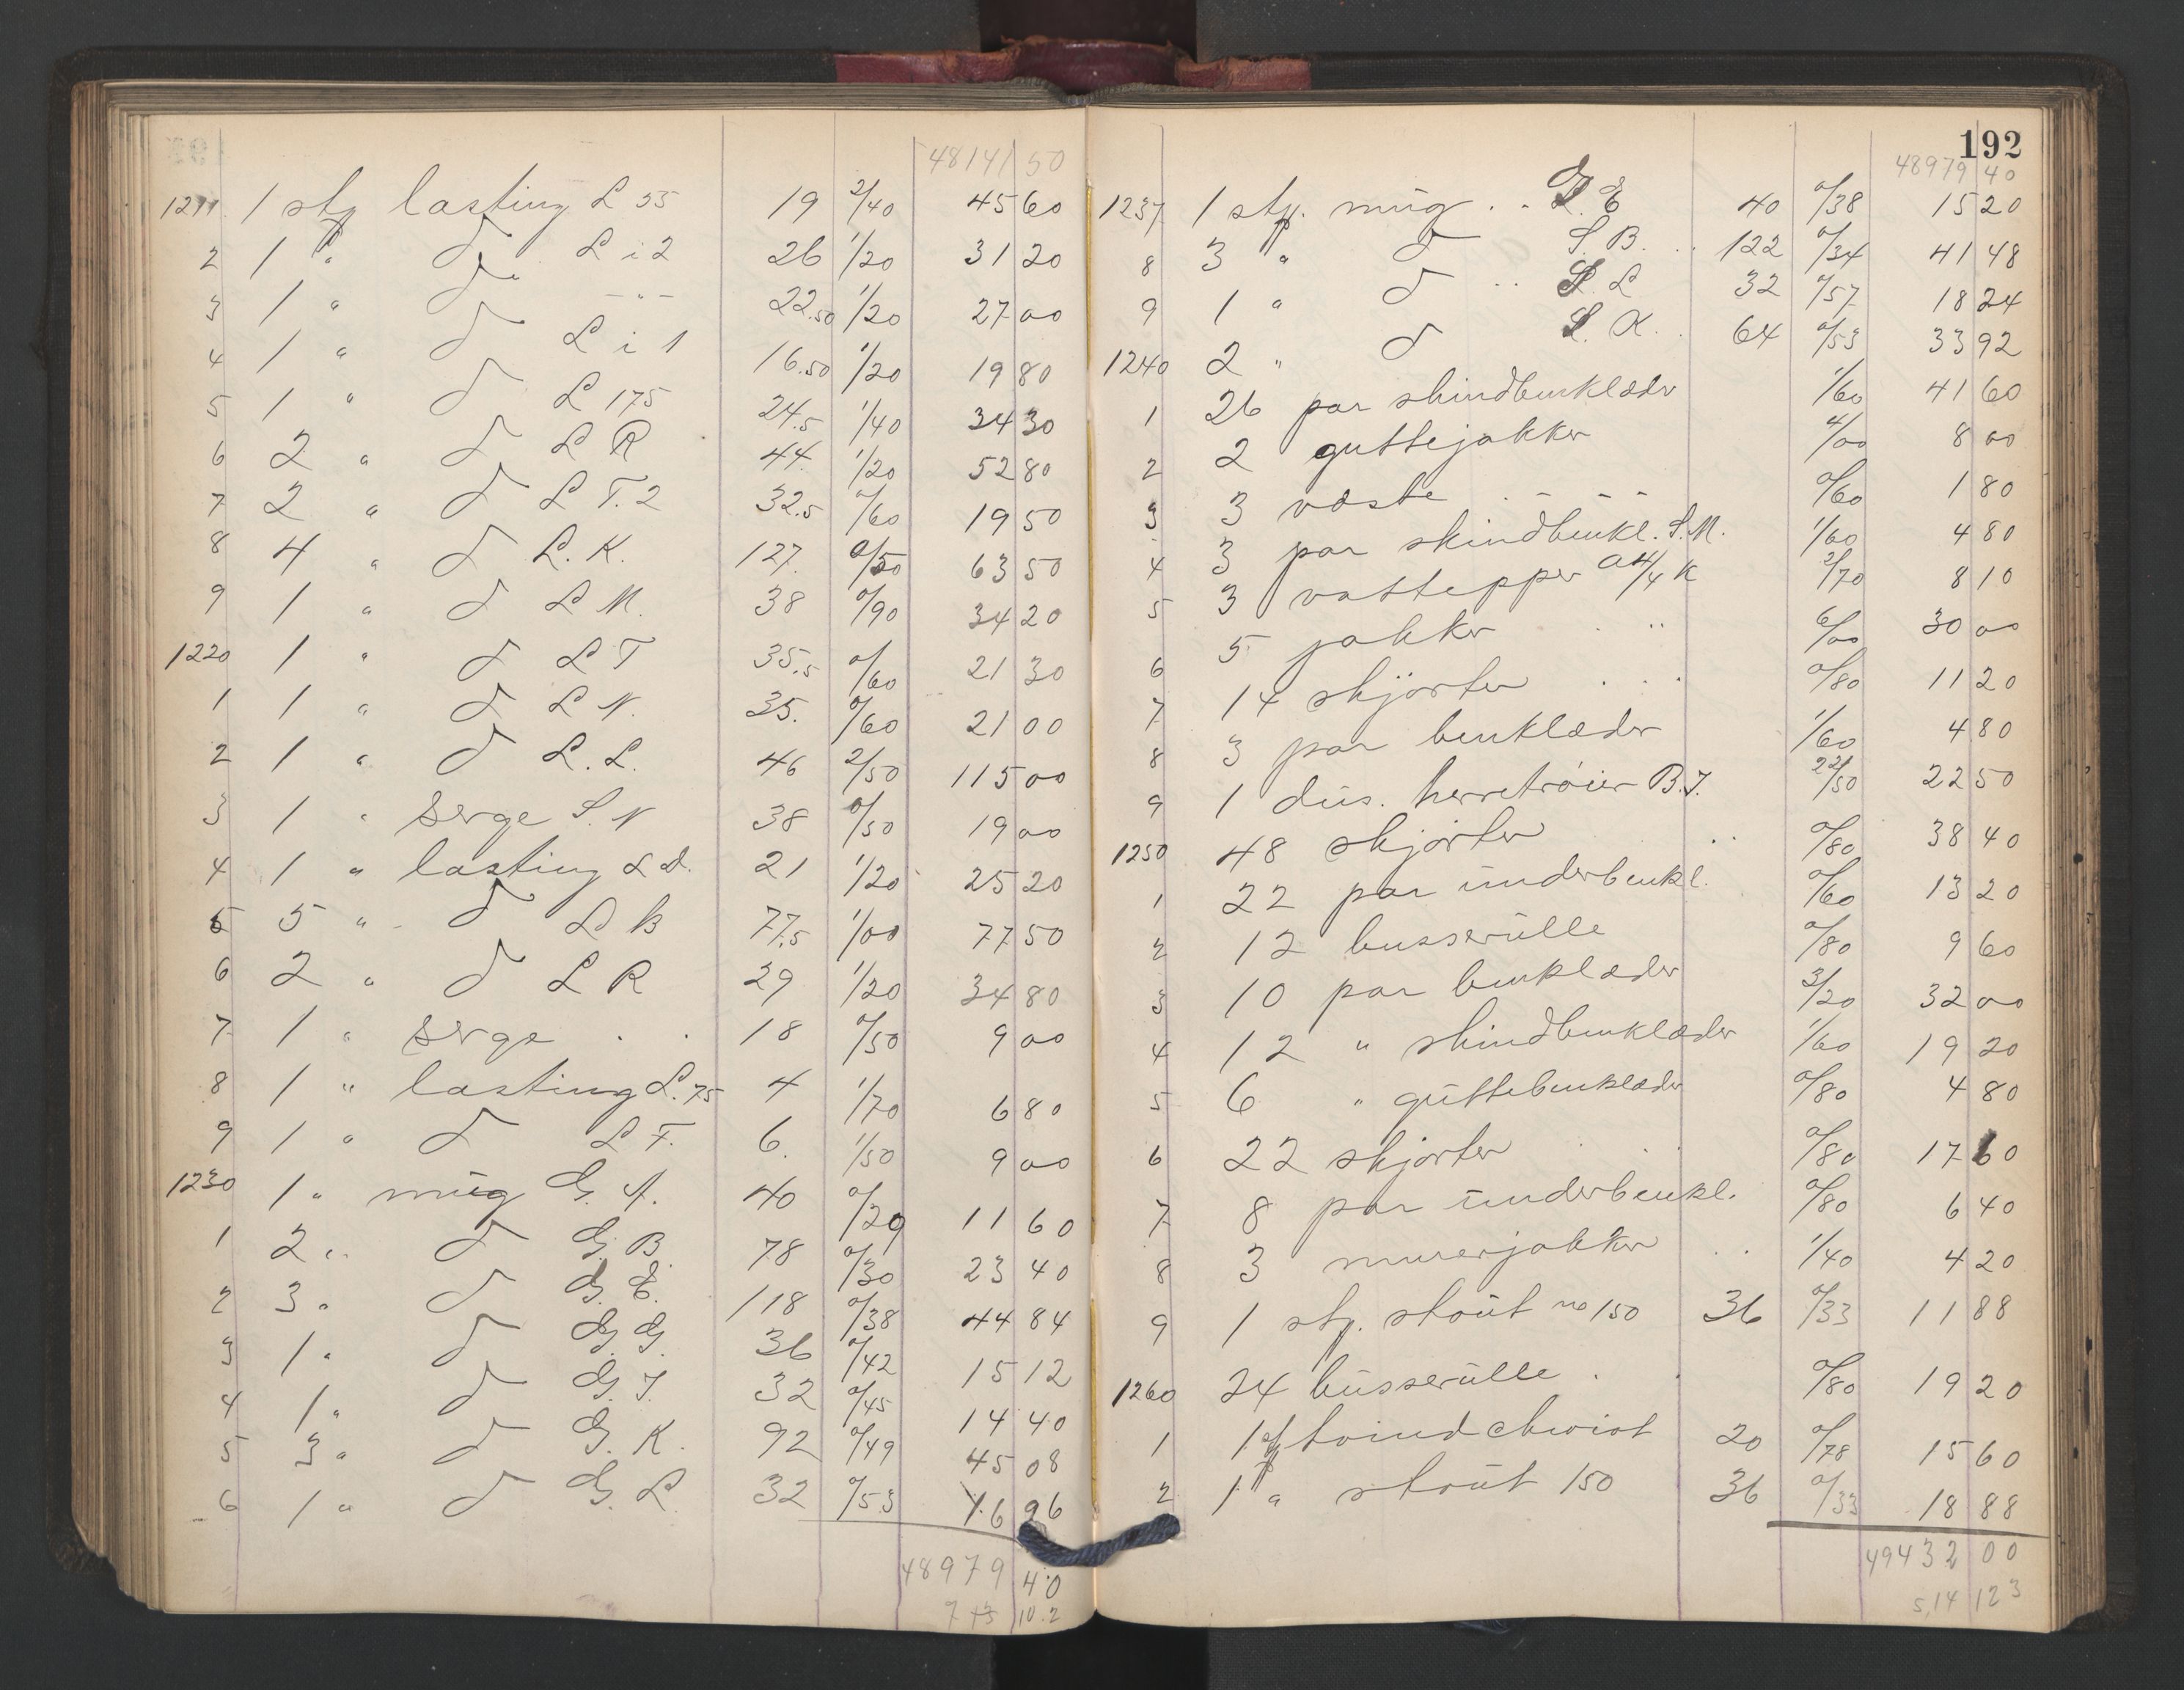 48141 50
1211 1 stg lasting L 55 19 2/40 45 60
2 1 " d L i 2 26 1/20 31 20
3 1 " d - " - 22.50 1/20 27 00
4 1 " d L i 1 16.50 1/20 19 80
5 1 " d L 175 24.5 1/40 34 30
6 2 " d L R 44. 1/20 52 80
7 2 " d L T. 2 32.5 0/60 19 50
8 4 " d L. K. 127. 0/50 63 50
9 1 " d L M. 38 0/90 34 20
1220 1 " d L T 35.5 0/60 21 30
1 1 " d L N. 35. 0/60 21 00
2 1 " d L. L. 46 2/50 115 00
3 1 " serge S. N 38 0/50 19 00
4 1 " lasting L d. 21 1/20 25 20
5 5 " d L B 77.5 1/00 77 50
6 2 " d L R 29 1/20 34 80
7 1 " serge . . 18 0/50 9 00
8 1 " lasting L. 75 4 1/70 6 80
9 1 " d L F. 6. 1/50 9 00
1230 1 " müg G. A. 40 0/29 11 60
1 2 " d G. B. 78 0/30 23 40
2 3 " d G. E. 118 0/38 44 84
3 1 " d G. G. 36 0/42 15 12
4 1 " d G. I. 32 0/45 14 40
5 3 " d G. K. 92 0/49 45 08
6 1 " d G. L. 32 0/53 16 96
48979 40
192
48979 40
1237 1 stg. müg . . E 40 0/38 15 20
8 3 " d S. B. . 122 0/34 41 48
9 1 " d . . S. L 32 0/57 18 24
1240 2 " d S. K. . 64 0/53 33 92
1 26 par skindbenklæder 1/60 41 60
2 2 guttejakker 4/00 8 00
3 3 væste . - - - 0/60 1 80
4 3 par skindbenkl. S. M. 1/60 4 80
5 3 vattepper a 4/4 K 2/70 8 10
6 5 jakker . " 6/00 30 00
7 14 skjorter . . . 0/80 11 20
8 3 par benklæder 1/60 4 80
9 1 düs. herretröier B. J. 22/50 22 50
1250 48 skjorter . . 0/80 38 40
1 22 par ünderbenkl. 0/60 13 20
2 12 busserülle 0/80 9 60
3 10 par benklæder 3/20 32 00
4 12 " skindbenklæder 1/60 19 20
5 6 " güttebenklæder 0/80 4 80
6 22 skjorter . . 0/80 17 60
7 8 par ünderbenkl. 0/80 6 40
8 3 murerjakker . . 1/40 4 20
9 1 stg. stoüt no 150 36 0/33 11 88
1260 24 büsserülle . . 0/80 19 20
1 1 stg tvind cheviot 20 0/78 15 60
2 1 " stoüt 150 36 0/33 18 88
49432 00
5,14 12 3